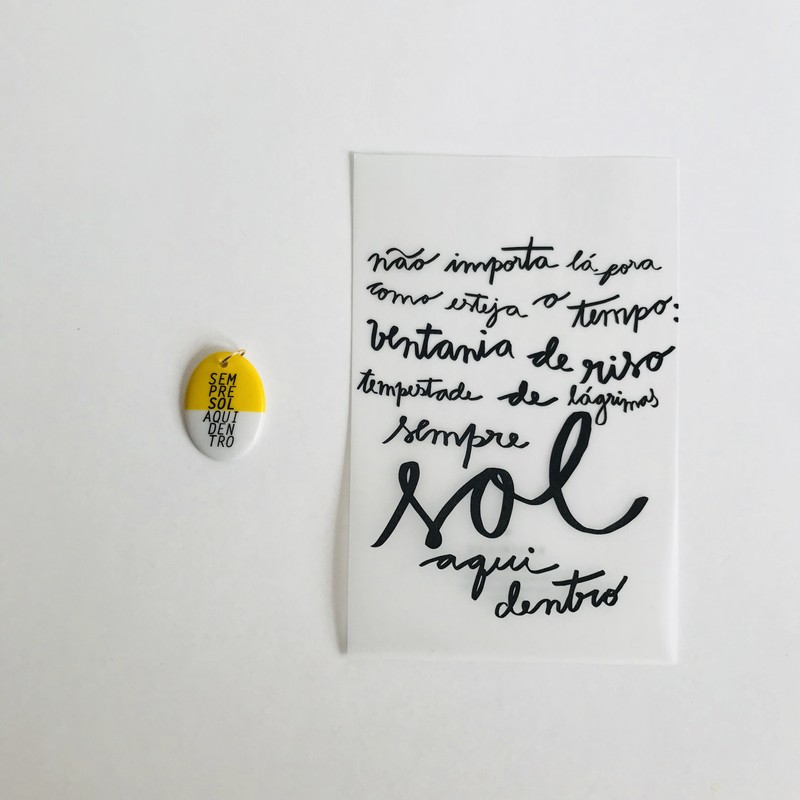 SEM
PRE
SOL
AQUI
DEN
TRO
não importa lá fora
como esteja o tempo:
ventania de riso
tempestade de lágrimas
sempre
sol
aqui
dentro